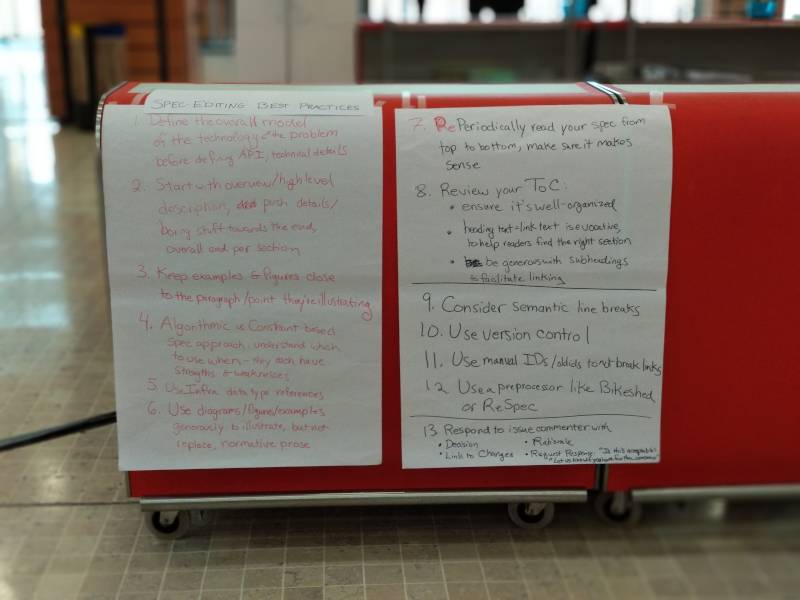 SPEC-EDITING BEST PRACTICES
1. Define the overall model
of the technology & the problem
before defining API, technical details
2. Start with overview/high level
description, push details/
boring stuff towards the end,
overall and per section
3. Keep examples & figures close
to the paragraph/point they're illustrating.
4. Algorithmic vs Constraint based
spec approach, understand which
to use when - they each have
strengths & weaknesses
5. Use Infra data type references
6. Use diagrams/figures/examples
generously to illustrate, but not
replace, normative prose
7. Periodically read your spec from
top to bottom, make sure it makes
sense
8. Review your ToC:
• ensure it's well-organized
• heading text=link text is evocative,
to help readers find the right section
• be generous with subheadings
to facilitate linking
9. Consider semantic line breaks
10. Use version control
11. Use manual IDs/oldids to not break links
12 Use a preprocessor like Bikeshed
or ReSpec
13. Respond to issue commenter with
• Decision • Rationale
• Link to Changes • Request Response: "Is this acceptable?